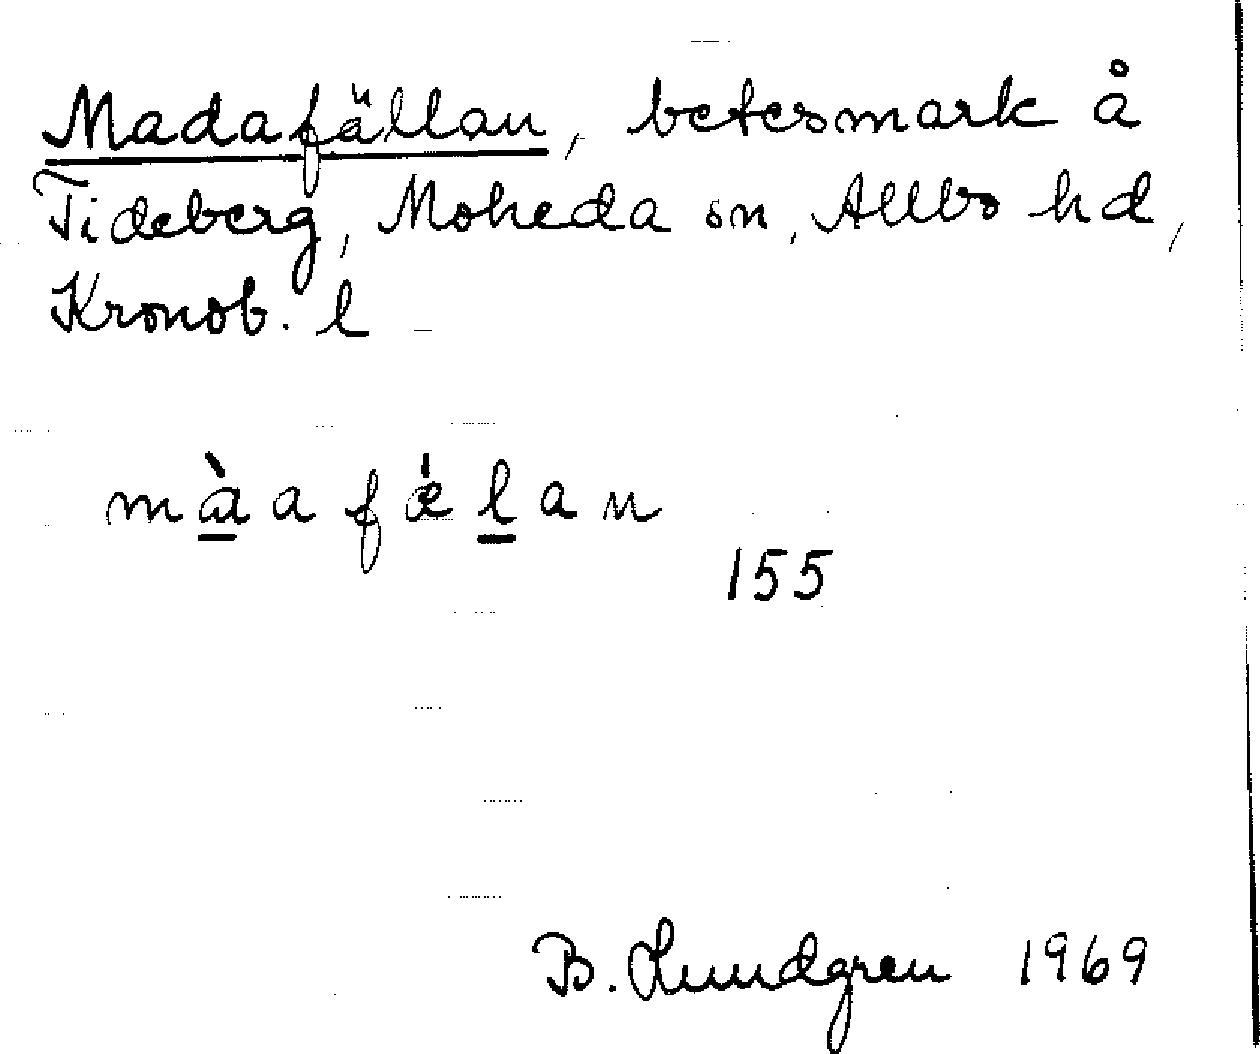 Madafällan, betesmark å
Tideberg, Moheda sn, Allbo hd,
Kronob. l
màa̲afæ̍l̲an
155
B. Lundgren 1969